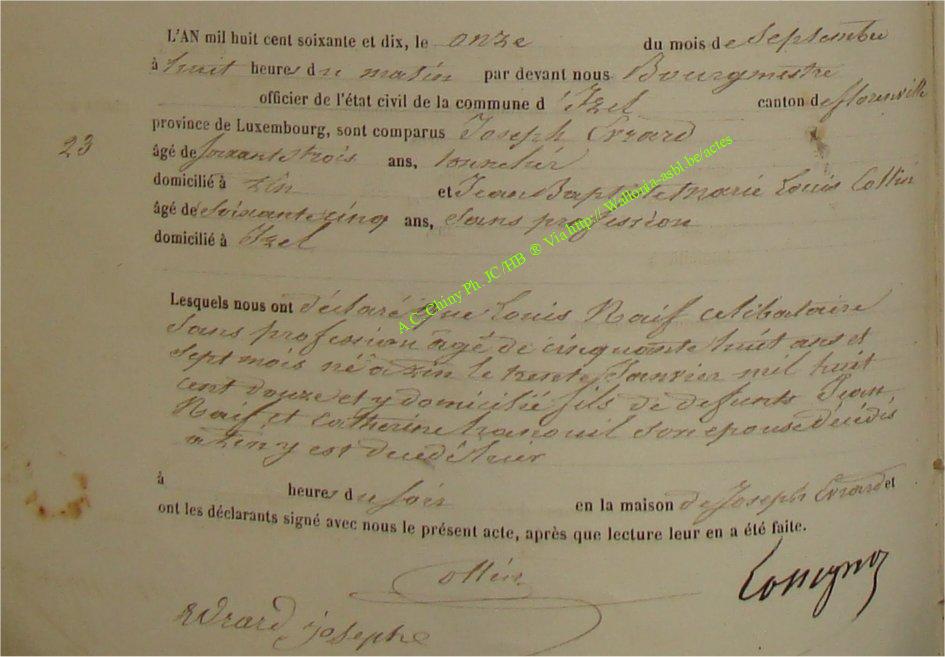 L'AN mil huit cent soixante et dix, le onze du mois de Septembre
à huit heures du matin par devant nous Bourgmestre
officier de l'état civil de la commune d'Izel canton de florenville
province de Luxembourg, sont comparus Joseph Evrard
23
âgé de soixantetrois ans, tonnelier
domicilié à zin et Jean Baptiste Marie Louis Collin
âgé de Soixantecinq ans, Sans profession
domicilié à Izel
A.C. Chiny Ph. JC/HB ® Via http://Wallonia-asbl.be/actes
Lesquels nous ont déclaré que Louis Naif célibataire
sans profession agé de cinquante huit ans et
sept mois né a zin le trente Janvier mil huit
cent douze et y domicilié fils de defunts Jean
Naif et Catherine son epouse décédés
a zin y est décédé hier
à heures du soir en la maison de Joseph Evrard et
ont les déclarants signé avec nous le présent acte, après que lecture leur en a été faite.
Collin
Evrard josephe